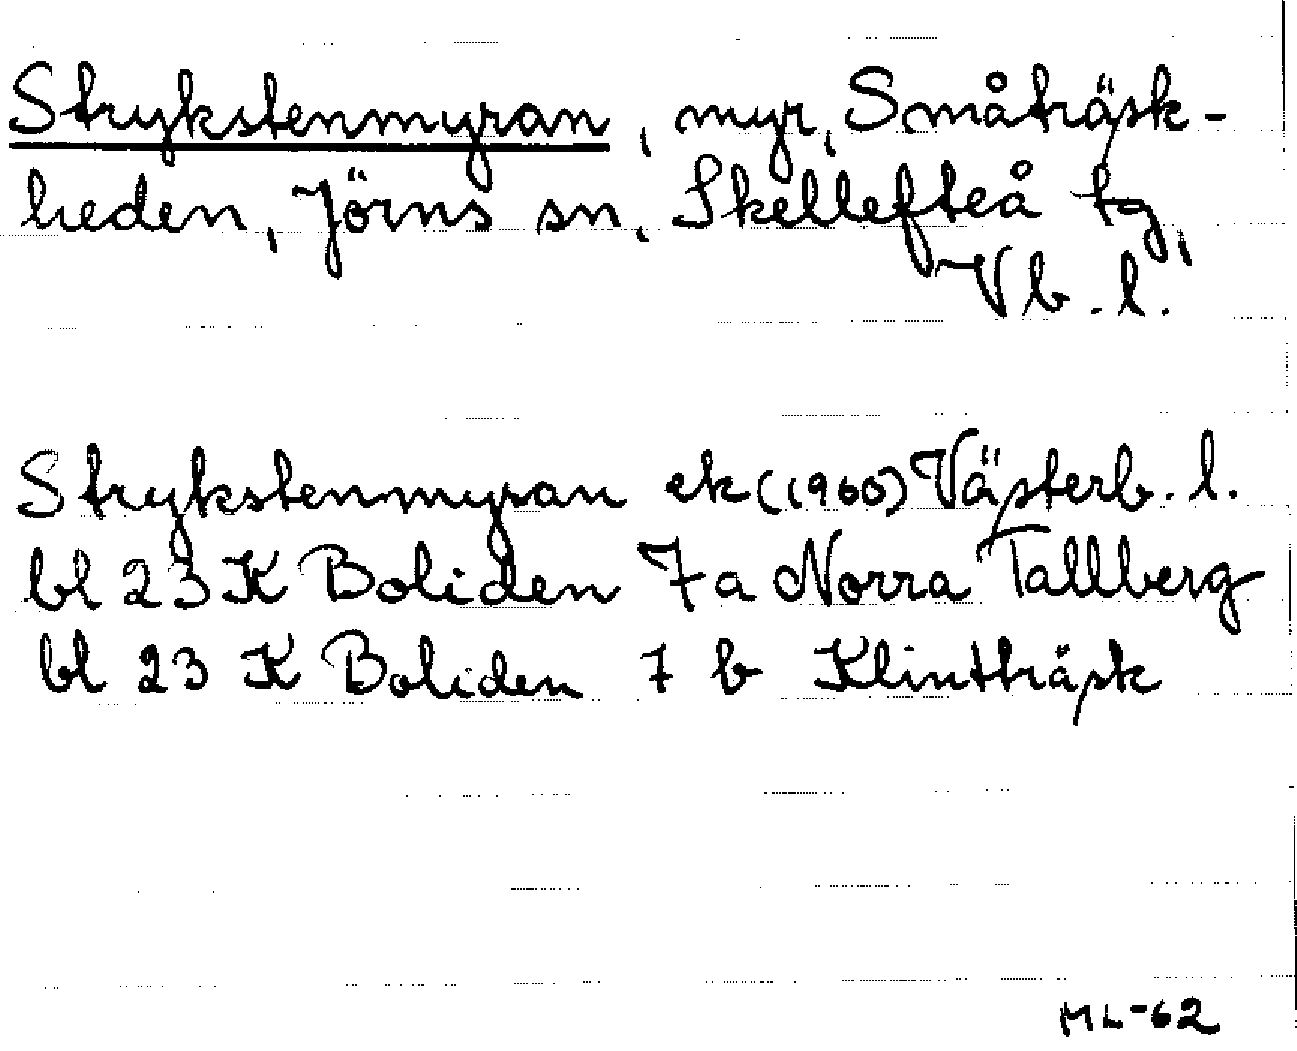 Strykstenmyran, myr, Småträsk-
heden, Jörns sn, Skellefteå tg,
Vb. l.
Strykstenmyran ek (1960) Västerb. l.
bl 23 K Boliden 7 a Norra Tallberg
bl 23 K Boliden 7 b Klintträsk
ML-62